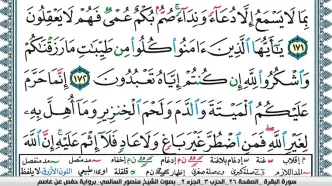 بِمَا لَا يَسْمَعُ إِلَّا دُعَاءً وَنِدَاءً صُمٌّ بُكْمٌ عُمْيٌ فَهُمْ لَا يَعْقِلُونَ
١٧١ يَٰٓأَيُّهَا الَّذِينَ ءَامَنُوا كُلُوا مِن طَيِّبَٰتِ مَا رَزَقْنَٰكُمْ
وَاشْكُرُوا لِلَّهِ إِن كُنتُمْ إِيَّاهُ تَعْبُدُونَ ١٧٢ إِنَّمَا حَرَّمَ
عَلَيْكُمُ الْمَيْتَةَ وَالدَّمَ وَلَحْمَ الْخِنزِيرِ وَمَا أُهِلَّ بِهِ
لِغَيْرِ اللَّهِ فَمَنِ اضْطُرَّ غَيْرَ بَاغٍ وَلَا عَادٍ فَلَا إِثْمَ عَلَيْهِ إِنَّ اللَّهَ
سورة البقرة الصفحة ٢٦ الحزب ٣ الجزء ٢ بصوت الشيخ منصور السالمي برواية حفص عن عاصم